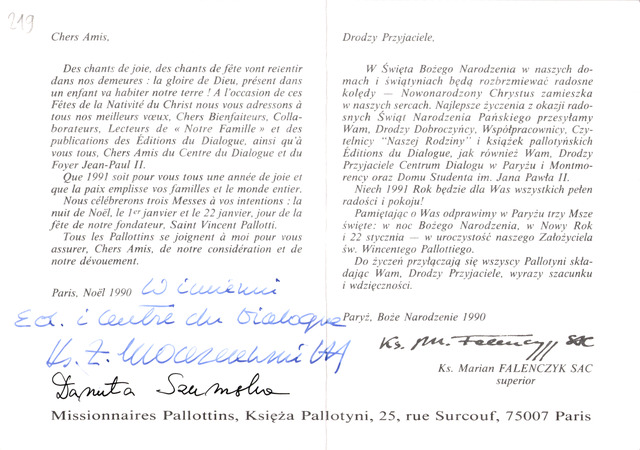 219
Chers Amis,
Des chants de joie, des chants de fête vont retentir
dans nos demeures : la gloire de Dieu, présent dans
un enfant va habiter notre terre ! A l'occasion de ces
Fêtes de la Nativité du Christ nous vous adressons à
tous nos meilleurs vœux, Chers Bienfaiteurs, Colla-
borateurs, Lecteurs de « Notre Famille » et des
publications des Éditions du Dialogue, ainsi qu'à
vous tous, Chers Amis du Centre du Dialogue et du
Foyer Jean-Paul II.
Que 1991 soit pour vous tous une année de joie et
que la paix emplisse vos familles et le monde entier.
Nous célébrerons trois Messes à vos intentions : la
nuit de Noël, le 1er janvier et le 22 janvier, jour de la
fête de notre fondateur, Saint Vincent Pallotti.
Tous les Pallottins se joignent à moi pour vous
assurer, Chers Amis, de notre considération et de
notre dévouement.
Paris, Noël 1990
W imieniu
Ed. i Centre du Dialogue
Ks. Z.
Danuta Szumska
Drodzy Przyjaciele,
W Święta Bożego Narodzenia w naszych do-
mach i świątyniach będą rozbrzmiewać radosne
kolędy — Nowonarodzony Chrystus zamieszka
w naszych sercach. Najlepsze życzenia z okazji rado-
snych Świąt Narodzenia Pańskiego przesyłamy
Wam, Drodzy Dobroczyńcy, Współpracownicy, Czy-
telnicy "Naszej Rodziny" i książek pallotyńskich
Éditions du Dialogue, jak również Wam, Drodzy
Przyjaciele Centrum Dialogu w Paryżu i Montmo-
rency oraz Domu Studenta im. Jana Pawła II.
Niech 1991 Rok będzie dla Was wszystkich pełen
radości i pokoju!
Pamiętając o Was odprawimy w Paryżu trzy Msze
święte: w noc Bożego Narodzenia, w Nowy Rok
i 22 stycznia — w uroczystość naszego Założyciela
św. Wincentego Pallottiego.
Do życzeń przyłączają się wszyscy Pallotyni skła-
dając Wam, Drodzy Przyjaciele, wyrazy szacunku
i wdzięczności.
Paryż, Boże Narodzenie 1990
Ks. M. Falenczyk SAC
Ks. Marian FALENCZYK SAC
superior
Missionnaires Pallottins, Księża Pallotyni, 25, rue Surcouf, 75007 Paris